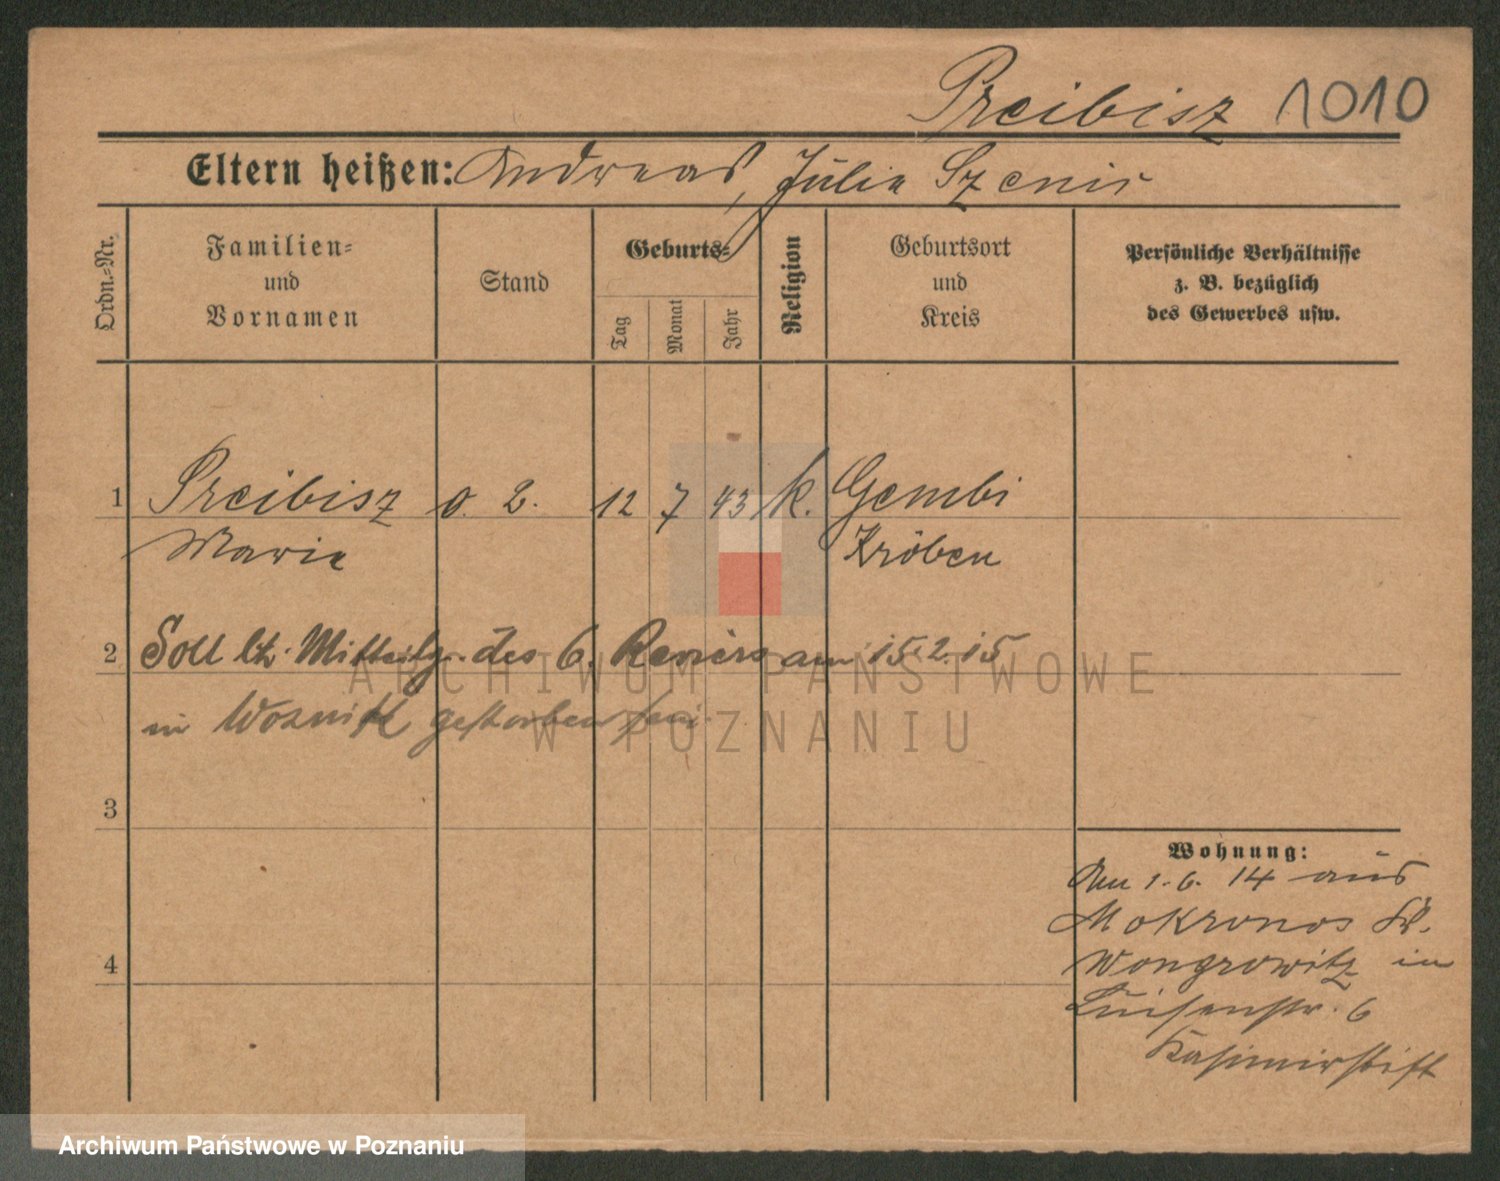 Preibisz 1010
Eltern heißen: Andreas, Julie Szenic
Ordn.-Nr.
Familien-
und
Vornamen
Stand
Geburts-
Tag
Monat
Jahr
Religion
Geburtsort
und
Kreis
Persönliche Verhältnisse
z. B. bezüglich
des Gewerbes usw.
1 Preibisz o. B. 12 7 43 k. Gembi
Marie Kröben
2 Soll lt. Mitteilg. des 6. Reviers am 15.2.15
in gestorben sein.
3
4
Wohnung:
Am 1.6.14 aus
Mokronos Kr.
Wongrowitz in
Luisenstr. 6
Kasimirstift
ARCHIWUM PAŃSTWOWE
W POZNANIU
Archiwum Państwowe w Poznaniu